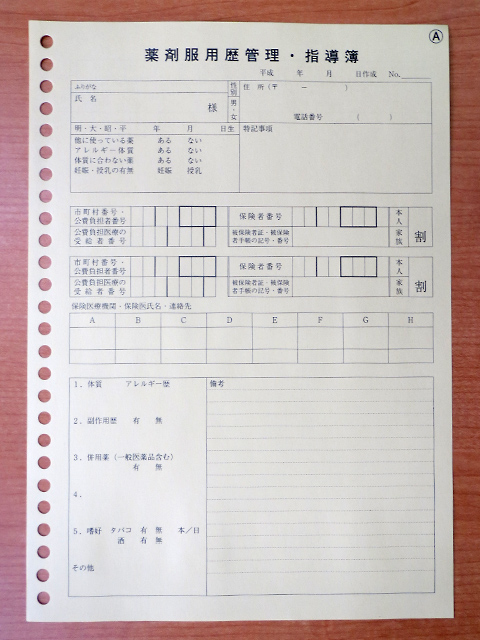 Ⓐ
薬剤服用歴管理・指導簿
平成 年 月 日作成 No.
ふりがな
氏名 様
性別 男・女
住所(〒 － )
電話番号 ( )
明・大・昭・平 年 月 日生
特記事項
他に使っている薬 ある ない
アレルギー体質 ある ない
体質に合わない薬 ある ない
妊娠・授乳の有無 妊娠 授乳
市町村番号・
公費負担者番号
保険者番号
本人
公費負担医療の
受給者番号
被保険者証・被保険
者手帳の記号・番号
家族
割
市町村番号・
公費負担者番号
保険者番号
本人
公費負担医療の
受給者番号
被保険者証・被保険
者手帳の記号・番号
家族
割
保険医療機関・保険医氏名・連絡先
A B C D E F G H
1．体質 アレルギー歴
備考
2．副作用歴 有 無
3．併用薬（一般医薬品含む）
有 無
4．
5．嗜好 タバコ 有 無 本／日
酒 有 無
その他